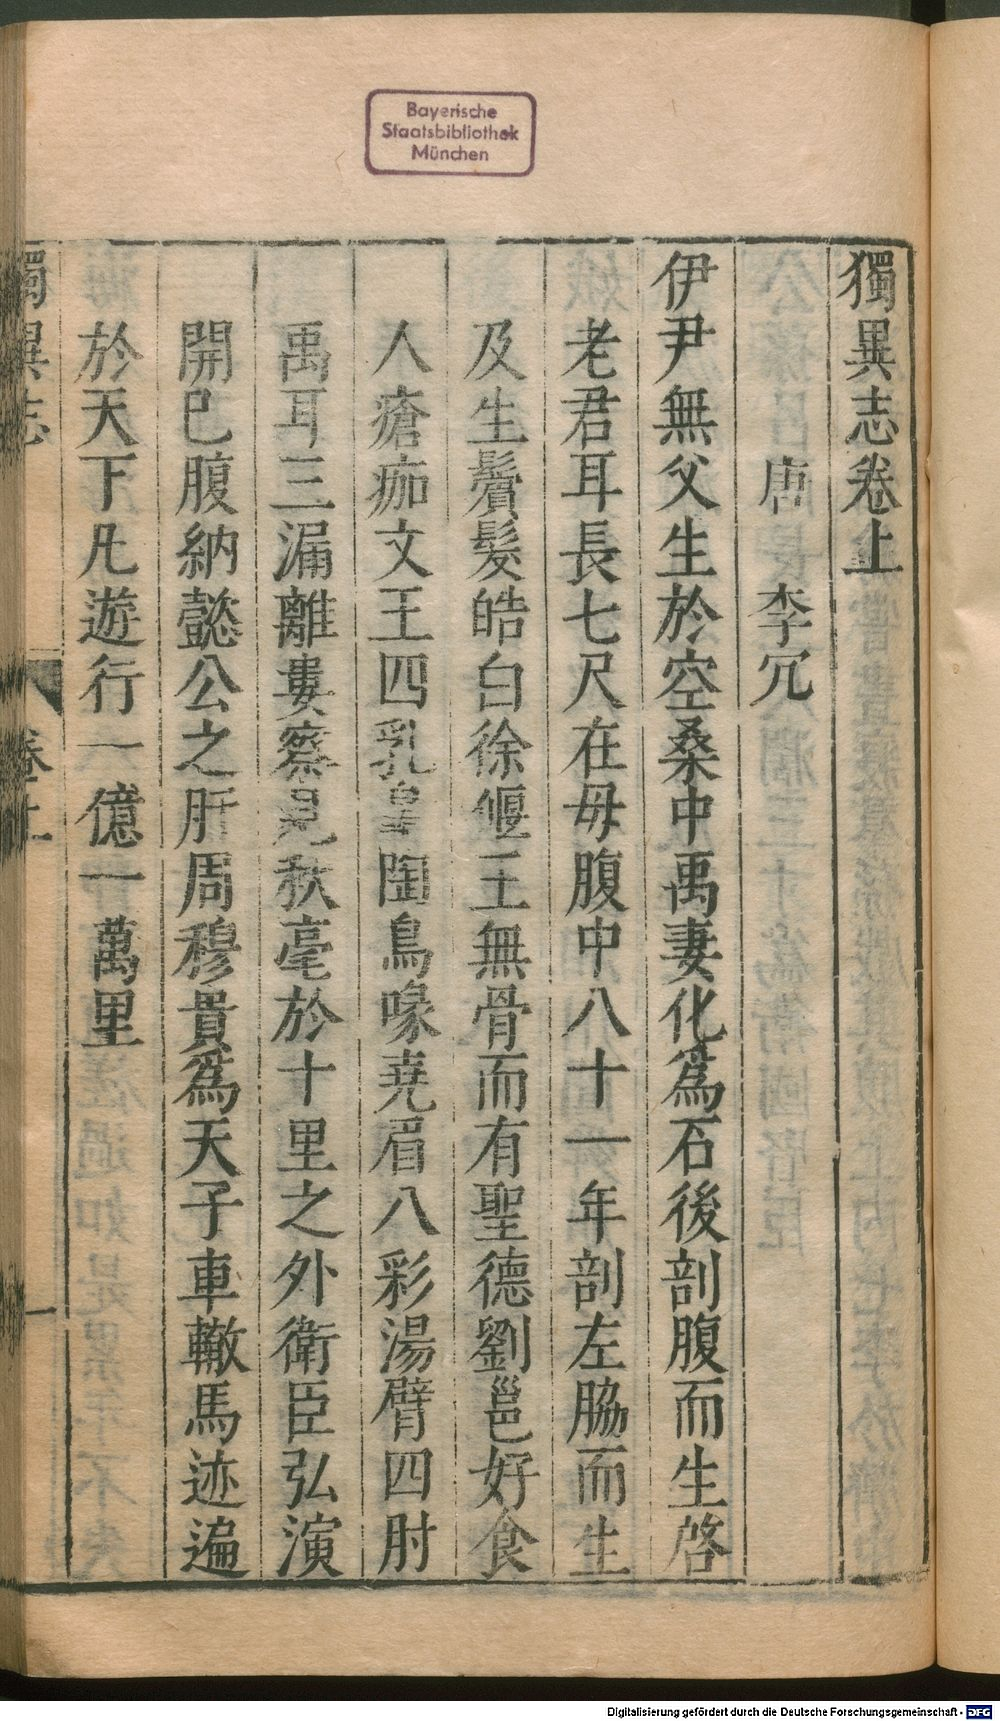 Bayerische
Staatsbibliothek
München
獨異志卷上
唐 李冗
伊尹無父生於空桑中禹妻化爲石後剖腹而生啓
老君耳長七尺在母腹中八十一年剖左脇而生
及生鬢髮皓白徐偃王無骨而有聖德劉邕好食
人瘡痂文王四乳皋陶鳥喙堯眉八彩湯臂四肘
禹耳三漏離婁察見秋毫於十里之外衛臣弘演
開已腹納懿公之肝周穆貴爲天子車轍馬迹遍
於天下凡遊行一億一萬里
獨異志 卷上 一
Digitalisierung gefördert durch die Deutsche Forschungsgemeinschaft - DFG